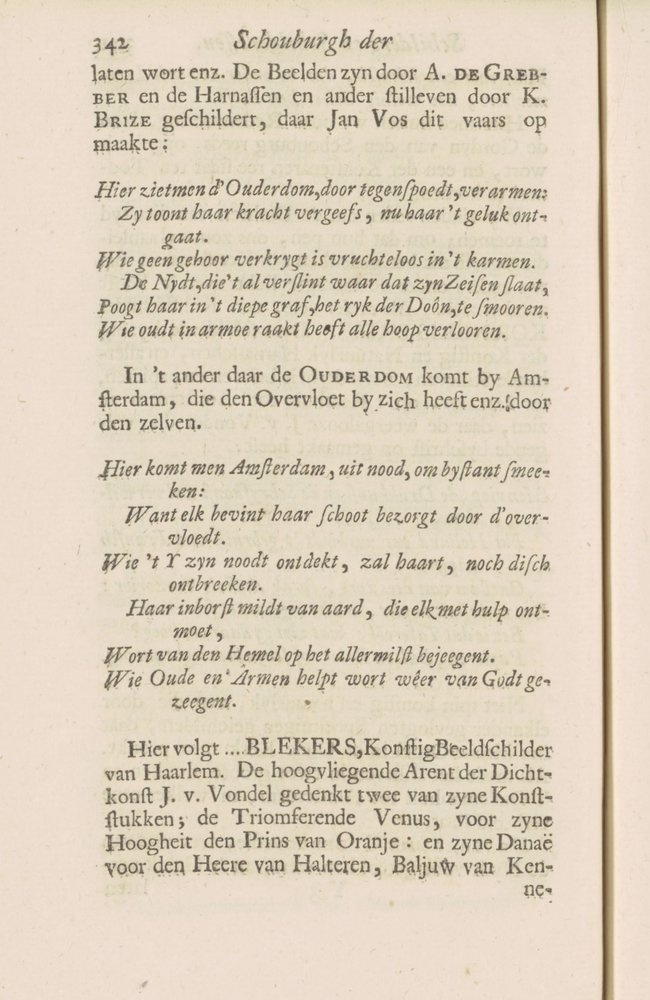 342 Schouburgh der
laten wort enz. De Beelden zyn door A. DE GREB-
BER en de Harnaſſen en ander ſtilleven door K.
BRIZE geſchildert, daar Jan Vos dit vaars op
maakte:
Hier zietmen d'Ouderdom, door tegenſpoedt, verarmen:
Zy toont haar kracht vergeefs, nu haar 't geluk ont-
gaat.
Wie geen gehoor verkrygt is vruchteloos in 't karmen.
De Nydt, die 't al verſlint waar dat zyn Zeiſen ſlaat,
Poogt haar in 't diepe graf, het ryk der Doôn, te ſmooren.
Wie oudt in armoe raakt heeft alle hoop verlooren.
In 't ander daar de OUDERDOM komt by Am-
ſterdam, die den Overvloet by zich heeft enz. door
den zelven.
Hier komt men Amſterdam, uit nood, om byſtant ſmee-
ken:
Want elk bevint haar ſchoot bezorgt door d'over-
vloedt.
Wie 't Y zyn noodt ontdekt, zal haart, noch diſch
ontbreeken.
Haar inborſt mildt van aard, die elk met hulp ont-
moet,
Wort van den Hemel op het allermilſt bejeegent.
Wie Oude en Armen helpt wort wêer van Godt ge-
zeegent.
Hier volgt .... BLEKERS, Konſtig Beeldſchilder
van Haarlem. De hoogvliegende Arent der Dicht-
konſt J. v. Vondel gedenkt twee van zyne Konſt-
ſtukken; de Triomferende Venus, voor zyne
Hoogheit den Prins van Oranje: en zyne Danaë
voor den Heere van Halteren, Baljuw van Ken-
ne-